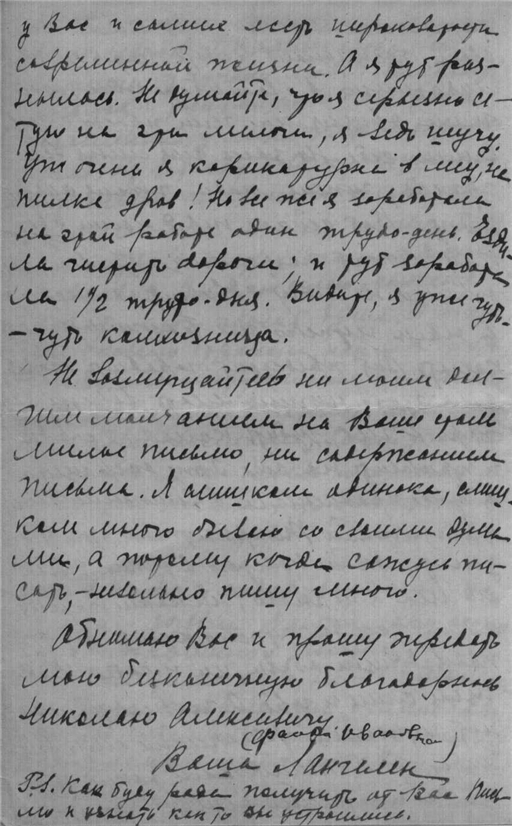 у Вас и самые есть шероховатости
современной жизни. А я тут раз-
нылась. Не думайте, что я серьезно се-
тую на эти мелочи, я ведь шучу.
Уж очень я карикатурна в лесу, на
пилке дров! Но все же я заработала
на этой работе один трудо-день. Езди-
ла чистить дороги; и тут заработа
ла 1 1/2 трудо-дня. Видите, я уже чуть-
-чуть колхозница.
Не возмущайтесь ни моим дол-
гим молчанием на Ваше такое
милое письмо, ни содержанием
письма. Я слишком одинока, слиш-
ком много бываю со своими дума
ми, а потому когда сажусь пи-
сать, - невольно пишу много.
Обнимаю Вас и прошу передать
мою бесконечную благодарность
Николаю Алексеевичу
Ивановна)
Ваша Ланге
P.S. Как буду рада получить от Вас пись
мо и узнать как то Вы устроились.